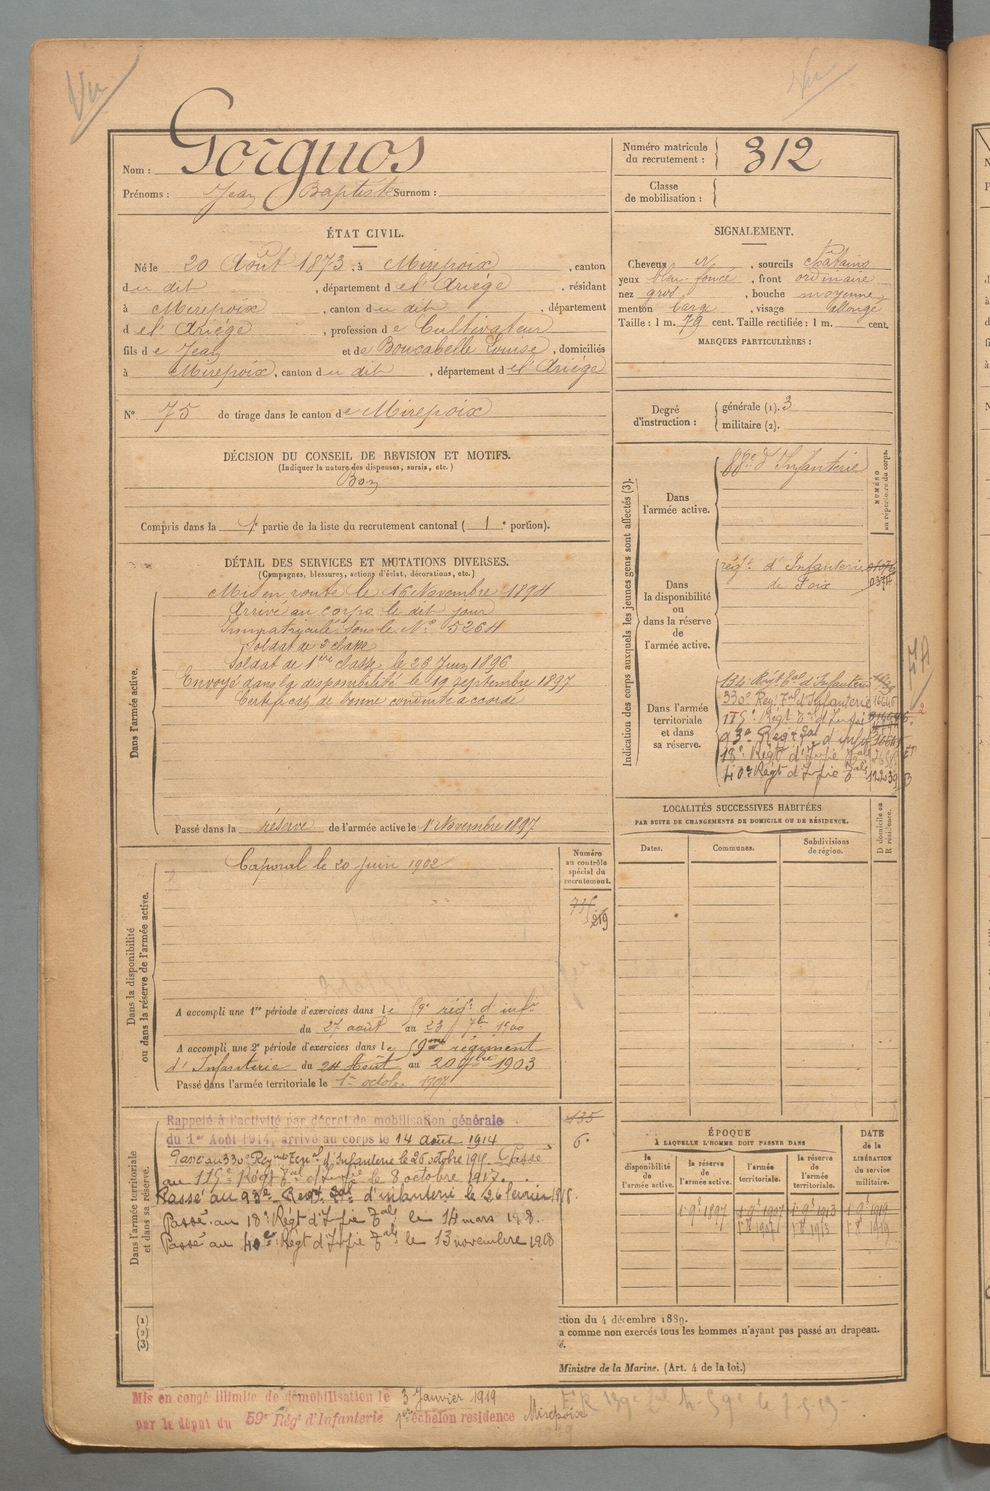 Vu
Vu
Nom : Gorguos
Prénoms : Jean Baptiste Surnom :
Numéro matricule du recrutement : 312
Classe de mobilisation :
ÉTAT CIVIL.
Né le 20 Août 1873, à Mirepoix, canton
du dit, département de l'Ariège, résidant
à Mirepoix, canton du dit, département
de l'Ariège, profession de Cultivateur
fils de Jean et de Boucabelle Louise, domiciliés
à Mirepoix, canton du dit, département de l'Ariège
N° 75 de tirage dans le canton de Mirepoix
SIGNALEMENT.
Cheveux, sourcils Chatains
yeux bleu foncé, front ordinaire
nez gros, bouche moyenne
menton large, visage allongé
Taille : 1 m. 79 cent. Taille rectifiée : 1 m. cent.
MARQUES PARTICULIÈRES :
Degré d'instruction :
générale (1). 3
militaire (2).
DÉCISION DU CONSEIL DE REVISION ET MOTIFS.
(Indiquer la nature des dispenses, sursis, etc.)
Bon
Compris dans la partie de la liste du recrutement cantonal ( 1 portion).
DÉTAIL DES SERVICES ET MUTATIONS DIVERSES.
(Campagnes, blessures, actions d'éclat, décorations, etc.)
Dans l'armée active.
Mis en route le 16 Novembre 1894
Arrivé au corps le dit jour
Immatriculé sous le N° 5264
Soldat de 2e classe
Soldat de 1ère classe le 26 Juin 1896
Envoyé dans la disponibilité le 19 septembre 1897
Certificat de bonne conduite accordé
Passé dans la réserve de l'armée active le 1er Novembre 1897
Indication des corps auxquels les jeunes gens sont affectés (3).
NUMÉRO au répertoire du corps.
Dans l'armée active.
88e d'Infanterie
Dans la disponibilité ou dans la réserve de l'armée active.
régt. d'Infanterie
de Foix
Dans l'armée territoriale et dans sa réserve.
134e Régt tal d'Infanterie
330e Reg. Tal d'Infanterie 16646
115e Régt Tal d'Infie
93e Regt Tal d'infie
18e Régt d'Infie Tale
40e Régt d'Infie Tale 12239
LOCALITÉS SUCCESSIVES HABITÉES
PAR SUITE DE CHANGEMENTS DE DOMICILE OU DE RÉSIDENCE.
Dates. Communes. Subdivisions de région. D domicile ou R résidence.
Dans la disponibilité ou dans la réserve de l'armée active.
Caporal le 20 juin 1902
Numéro au contrôle spécial du recrutement.
219
A accompli une 1re période d'exercices dans le 59e régt d'infie
du 27 août au 23 7bre 1900
A accompli une 2e période d'exercices dans le 59me régiment
d'Infanterie du 24 Août au 20 7bre 1903
Passé dans l'armée territoriale le 1er octobre 1907
Dans l'armée territoriale et dans sa réserve.
Rappelé à l'activité par décret de mobilisation générale
du 1er Août 1914, arrivé au corps le 14 août 1914
Passé au 330e Regiment Teral d'Infanterie le 26 octobre 191 . Passé
au 115e Régt Tal d'Infie le 8 octobre 1917.
Passé au 93e Regt Tal d'infanterie le 26 fevrier 1918.
Passé au 18e Régt d'Infie Tale le 14 mars 1918.
Passé au 40e Régt d'Infie Tale le 13 novembre 1908
135
6.
ÉPOQUE
A LAQUELLE L'HOMME DOIT PASSER DANS
la disponibilité de l'armée active. la réserve de l'armée active. l'armée territoriale. la réserve de l'armée territoriale.
DATE de la LIBÉRATION du service militaire.
1 9 1897 1 9 1907 1 9 1913 1 9 1919
(1) (2) (3)
ction du 4 décembre 1889.
a comme non exercés tous les hommes n'ayant pas passé au drapeau.
é.
Ministre de la Marine. (Art. 4 de la loi.)
Mis en congé illimité de démobilisation le 3 Janvier 1919
par le dépôt du 59e Régt d'Infanterie 1er échelon residence Mirepoix